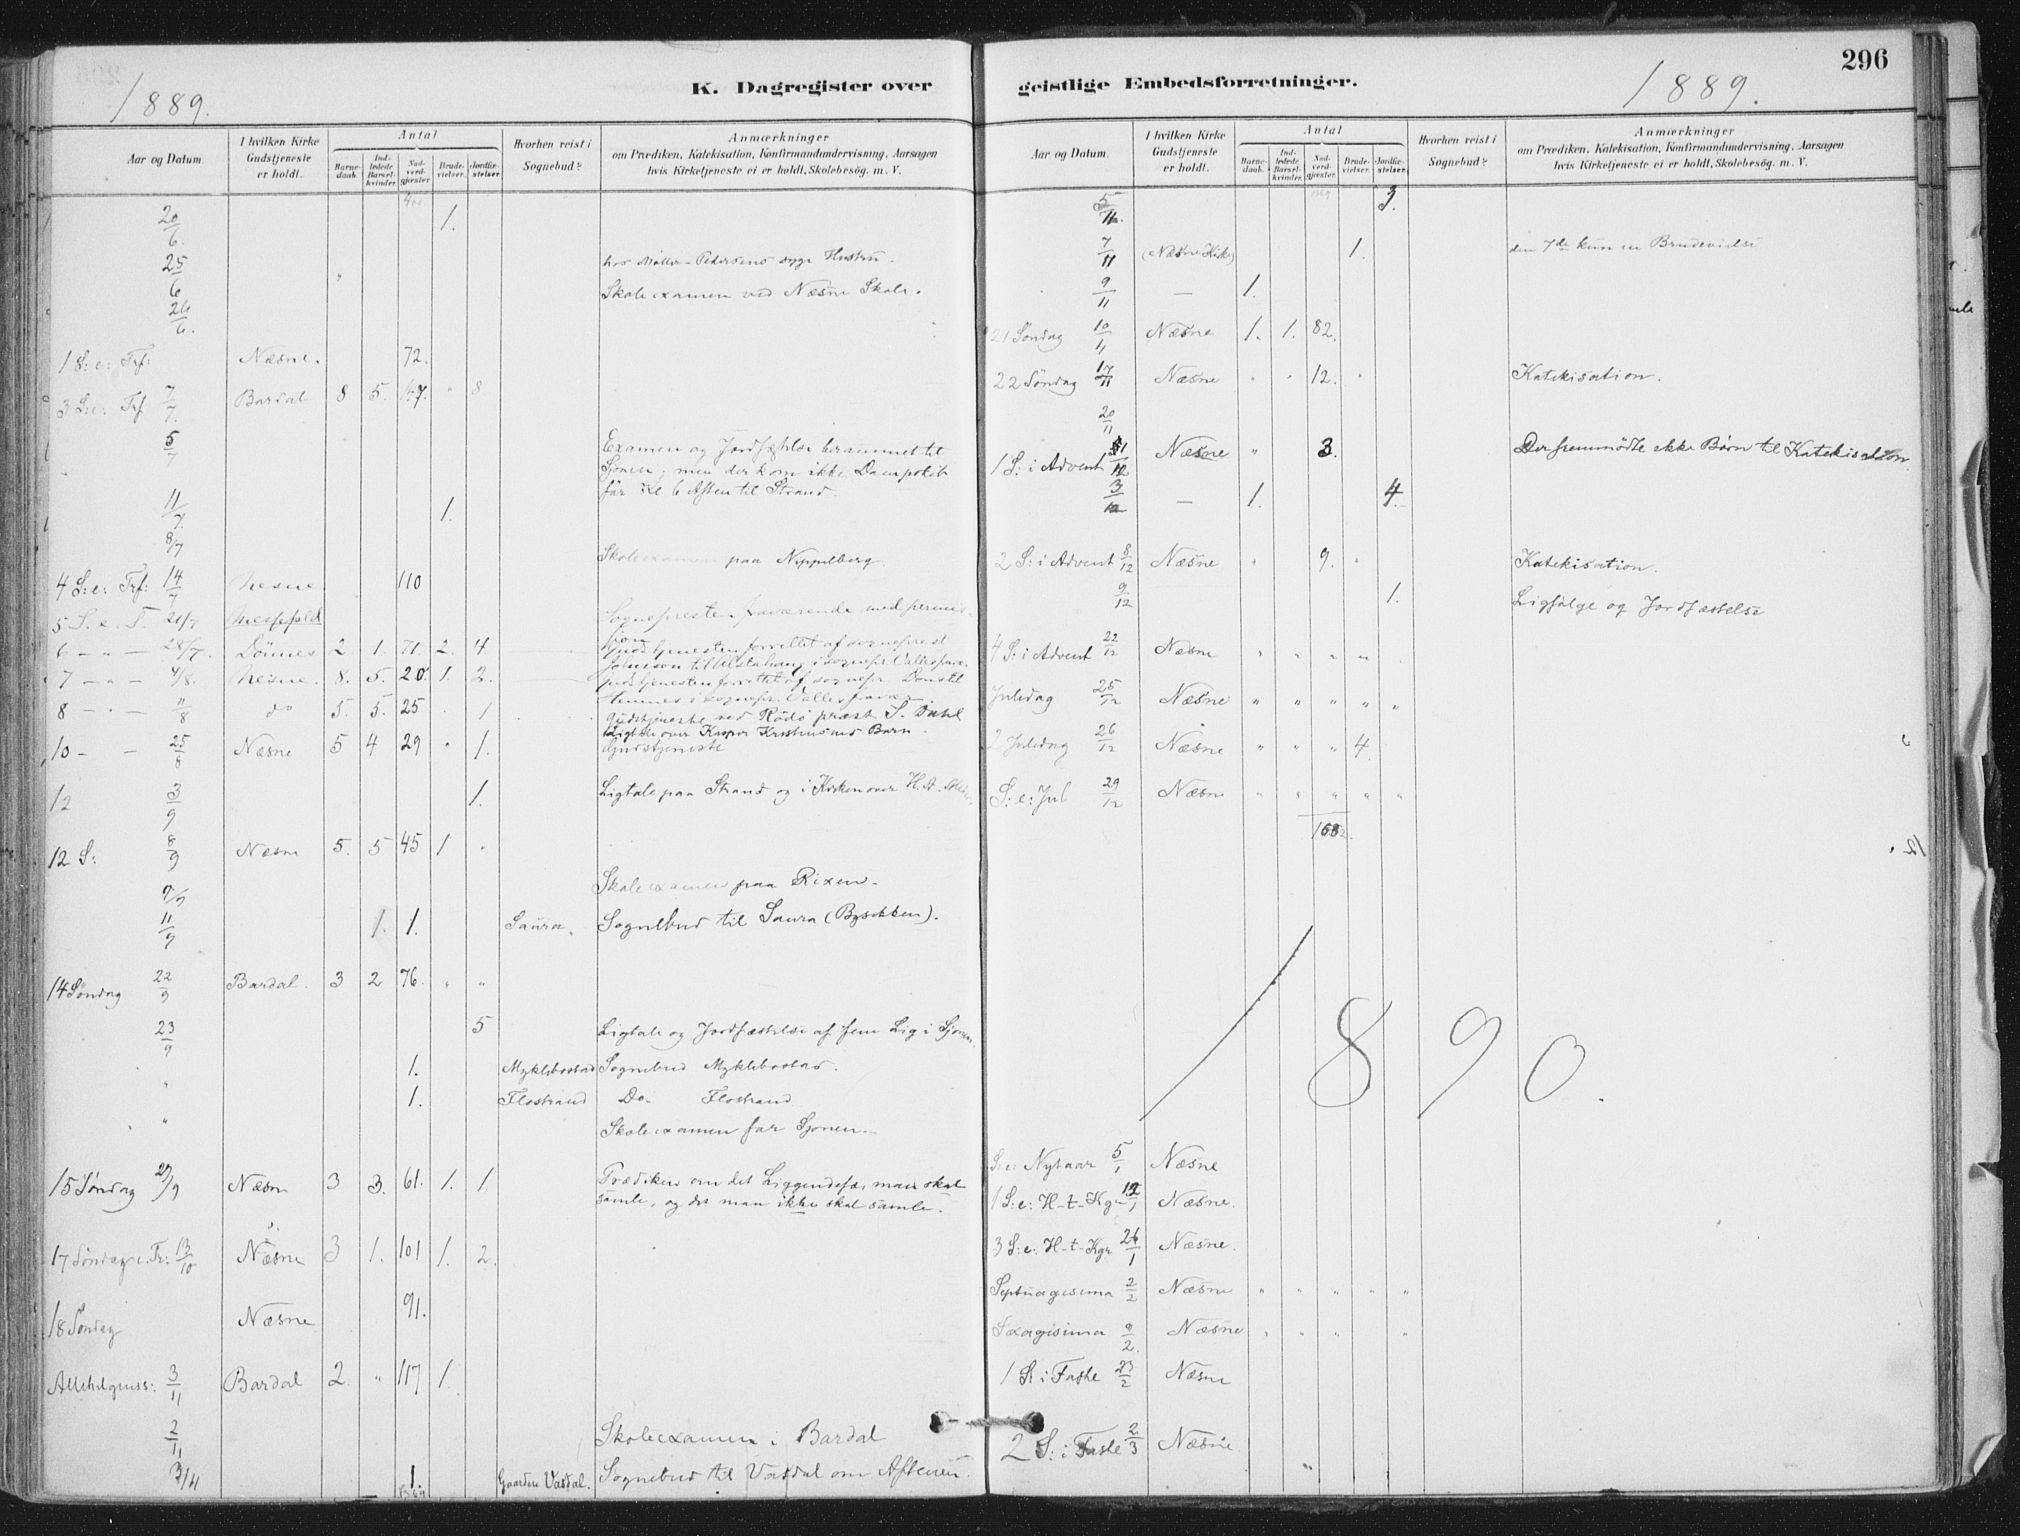 296
1889.
K. Dagregister over
geistlige Embedsforretninger.
1889.
Aar og Datum.
I hvilken Kirke Gudstjeneste er holdt.
Antal
Barnedaab.
Indledede Barselkvinder.
Nadverdgjester.
Brudevielser.
Jordfæstelser.
Hvorhen reist i Sognebud?
Anmærkninger
om Prædiken, Katekisation, Konfirmandundervisning, Aarsagen
hvis Kirketjeneste ei er holdt, Skolebesög. m. V.
20/6. 1.
25/6 " hos Møller-Pedersens syge Hustru.
Skoleexamen ved Næsne Skole.
26/6.
1 S: e: Trf: Næsne. 72.
3 S: e: Trf 7/7. Bardal 8 5. 147. " 8
5/7 Examen og Jordfæstelse berammet til
Sjonen; men der kom ikke Dampskib
før Kl 6 Aften til Strand.
11/7. 1.
8/7 Skoleexamen paa Nippelberg.
4 S: e: Trf: 14/7 Nesne 110
5 S. e. T. 21/7 Messefald Sognepresten fraværende med permission
6 - " - 28/7. Dønnes 2 1. 71. 2. 4 Gudstjenesten forrettet af sogneprest
7 - " - 4/8. Nesne. 8. 5. 20. 1. 2. Gudstjenesten forrettet af sognepr.
8 - " - 11/8 do 5. 5. 25 . 1 Gudstjeneste ved Rödö præst S. Dahl
Ligtale over Kaspar Kristiansens Barn.
10 - - 25/8 Næsne 5 4 29 " 1. Gudstjeneste
12 3/9 1. Ligtale paa Strand og i Kirken over H. A.
12 S: 8/9 Næsne 5. 5 45 1 "
7/9 Skoleexamen paa Rixen.
11/9 1. 1. Saura. Sognebud til Saura (Bysekken).
14 Søndag 22/9 Bardal. 3 2 76. " "
23/9 5 Ligtale og Jordfæstelse af fem Lig i Sjonen.
" 1. Myklebostad Sognebud Myklebostad.
" 1. Flostrand Do- Flostrand
Skoleexamen for Sjonen.-
15 Søndag 29/9 Næsn 3 3. 61. 1. 1. Prædiken om det Liggendefæ, man skal
samle, og det man ikke skal samle.
17 Søndag e. Tr: 13/10 Næsne 3 1. 101 1. 2.
18 Søndag Næsne 91.
Allehelgenss: 3/11 Bardal 2. " 117 1.
2/11 Skoleexamen i Bardal
3/11 1. Gaarden Vasdal. Sognebud til Vasdal om Aftenen.
Aar og Datum.
I hvilken Kirke Gudstjeneste er holdt.
Antal
Barnedaab.
Indledede Barselkvinder.
Nadverdgjester.
Brudevielser.
Jordfæstelser.
Hvorhen reist i Sognebud?
Anmærkninger
om Prædiken, Katekisation, Konfirmandundervisning, Aarsagen
hvis Kirketjeneste ei er holdt, Skolebesög. m. V.
5/11. 3.
7/11 (Næsne Kirke) 1. den 7de kun en Brudevielse
9/11 — 1.
21 Søndag 10/11 Næsne 1. 1. 82.
22 Søndag 17/11 Næsne " " 12. " Katekisation.
20/11
1 S: i Advent 1/12 Næsne " 3. Der fremmødte ikke Børn til Katekisation.
3/12 — 1. 4.
2 S: i Advent 8/12 Næsne " 9. " Katekisation.
9/12 1. Ligfølge og Jordfæstelse
4 S: i Advent 22/12 Næsne " " " " .
Juledag 25/12 Næsne " " " " "
2 Juledag 26/12 Næsne " " " 4.
S: e: Jul 29/12 Næsne " " " " "
1890.
S: e: Nytaar 5/1 Næsne
1 S: e: H-t-Kgr 12/1 Næsne.
3 S: e: H-t-Kgr 26/1 Næsne.
Septuagesima 2/2 Næsne " " " " "
Sexagesima 9/2. Næsne " " " "
1 S: i Faste 23/2 Næsne
2 S: i Faste 2/3 Næsne.